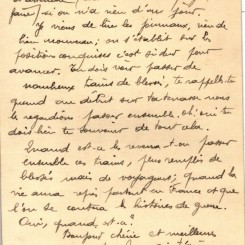 faire, si on n'a rien d'un jour.
Je viens de lire les journaux, rien de
bien nouveau ; on s'établit sur les
positions conquises c'est si dur pour
avancer. Tu dois voir passer de
nombreux trains de blessés, te rappelles-tu
quand au début sur la terrasse nous
le regardions passer ensemble. oh, oui tu
dois bien te souvenir de tout cela.
Quand est-ce les reverra-t-on passer
ensemble ces trains, plus remplis de
blessés mais de voyageurs ; quand la
vie aura repris partout en France et que
l'on se contera les histoires de guerre.
Oui, quand est-ce ?
Bonjour, chérie et meilleurs